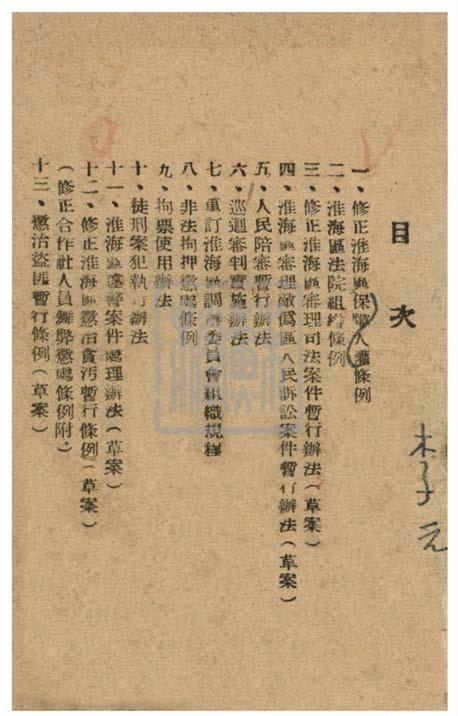 目次
一、修正淮海區保障人權條例
二、淮海區法院組織條例
三、修正淮海區審理司法案件暫行辦法(草案)
四、淮海區審理敵僞區人民訴訟案件暫行辦法(草案)
五、人民陪審暫行辦法
六、巡迴審判實施辦法
七、重訂淮海區調解委員會組織規程
八、非法拘押懲處條例
九、拘票使用辦法
十、徒刑案犯執行辦法
十一、淮海區違警案件處理辦法(草案)
十二、修正淮海區懲治貪汚暫行條例(草案)
(修正合作社人員舞弊懲處條例附.)
十三、懲治盜匪暫行條例(草案)